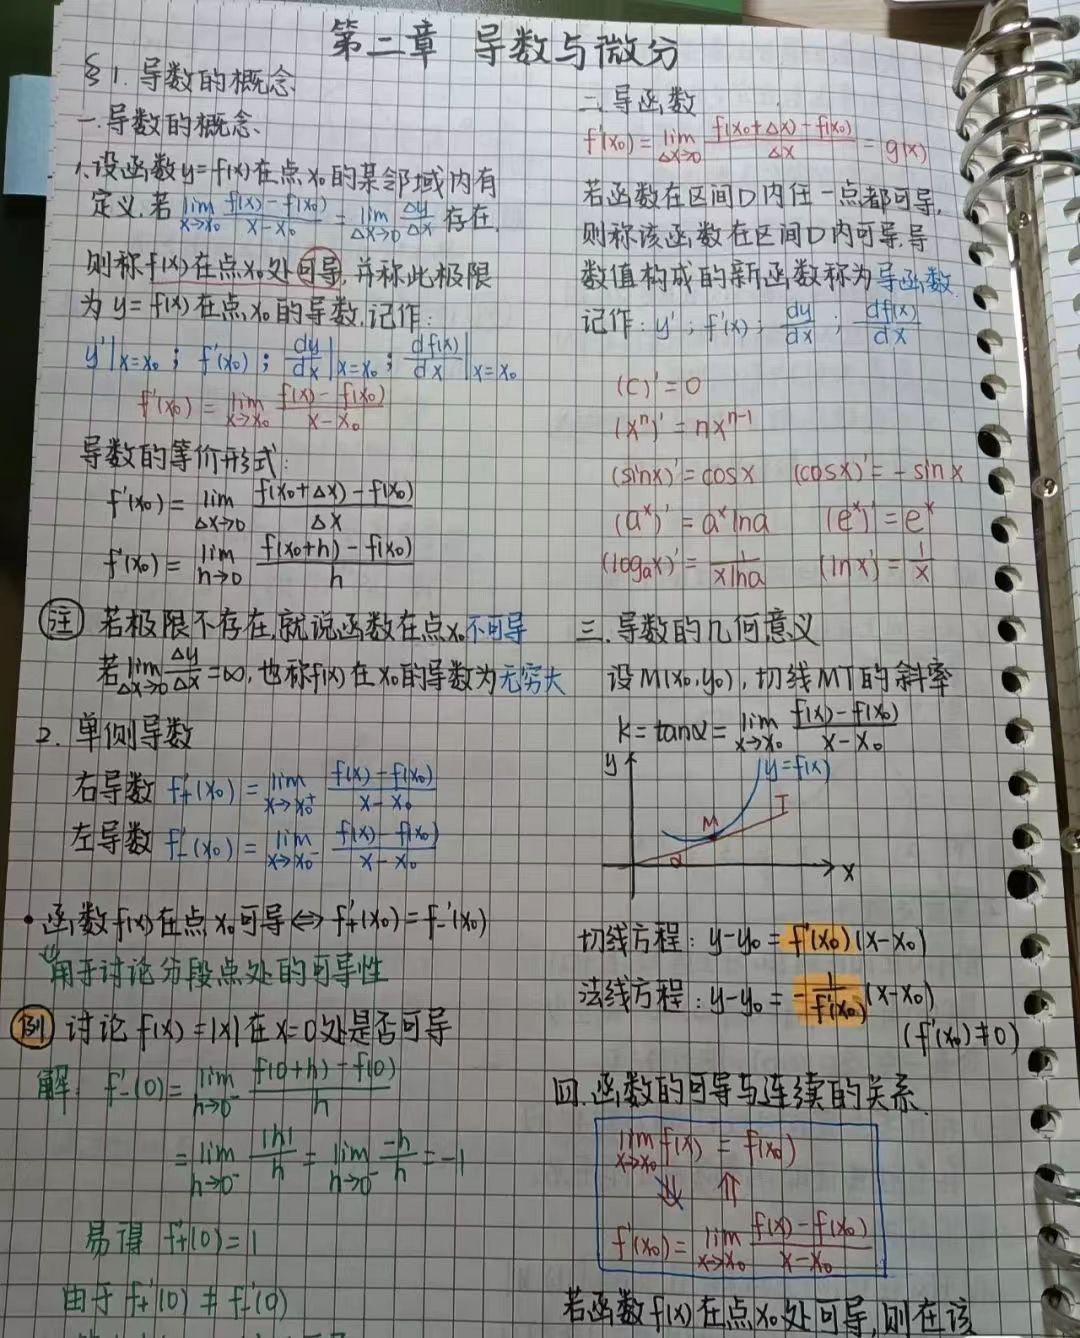 第二章 导数与微分
§1. 导数的概念
一.导数的概念、
1.设函数y=f(x)在点x₀的某邻域内有
定义,若 lim_{x→x₀} (f(x)-f(x₀))/(x-x₀) = lim_{Δx→0} Δy/Δx 存在,
则称f(x)在点x₀处可导,并称此极限
为y=f(x)在点x₀的导数,记作:
y'|x=x₀ ; f'(x₀) ; dy/dx|x=x₀ ; df(x)/dx|x=x₀
f'(x₀) = lim_{x→x₀} (f(x)-f(x₀))/(x-x₀)
导数的等价形式:
f'(x₀) = lim_{Δx→0} (f(x₀+Δx)-f(x₀))/Δx
f'(x₀) = lim_{h→0} (f(x₀+h)-f(x₀))/h
注 若极限不存在,就说函数在点x₀不可导
若 lim_{Δx→0} Δy/Δx =∞, 也称f(x)在x₀的导数为无穷大
2. 单侧导数
右导数 f₊'(x₀) = lim_{x→x₀⁺} (f(x)-f(x₀))/(x-x₀)
左导数 f₋'(x₀) = lim_{x→x₀⁻} (f(x)-f(x₀))/(x-x₀)
• 函数f(x)在点x₀可导⇔f₊'(x₀)=f₋'(x₀)
用于讨论分段点处的可导性
例 讨论f(x)=|x|在x=0处是否可导
解: f₋'(0) = lim_{h→0⁻} (f(0+h)-f(0))/h
= lim_{h→0⁻} |h|/h = lim_{h→0⁻} -h/h = -1
易得 f₊'(0)=1
由于 f₊'(0) ≠ f₋'(0)
二.导函数
f'(x₀) = lim_{Δx→0} (f(x₀+Δx)-f(x₀))/Δx = g(x)
若函数在区间D内任一点都可导,
则称该函数在区间D内可导,导
数值构成的新函数称为导函数.
记作: y' ; f'(x) ; dy/dx ; df(x)/dx
(C)'=0
(xⁿ)'=nxⁿ⁻¹
(sinx)'=cosx (cosx)'=-sinx
(aˣ)'=aˣlna (eˣ)'=eˣ
(logₐx)'=1/(xlna) (lnx)'=1/x
三.导数的几何意义
设M(x₀,y₀),切线MT的斜率
K=tanα= lim_{x→x₀} (f(x)-f(x₀))/(x-x₀)
y
y=f(x)
T
M
α
x
切线方程: y-y₀=f'(x₀)(x-x₀)
法线方程: y-y₀=-1/f'(x₀) (x-x₀)
(f'(x₀)≠0)
四.函数的可导与连续的关系.
lim_{x→x₀} f(x) = f(x₀)
⇓ ⇑
f'(x₀) = lim_{x→x₀} (f(x)-f(x₀))/(x-x₀)
若函数f(x)在点x₀处可导,则在该